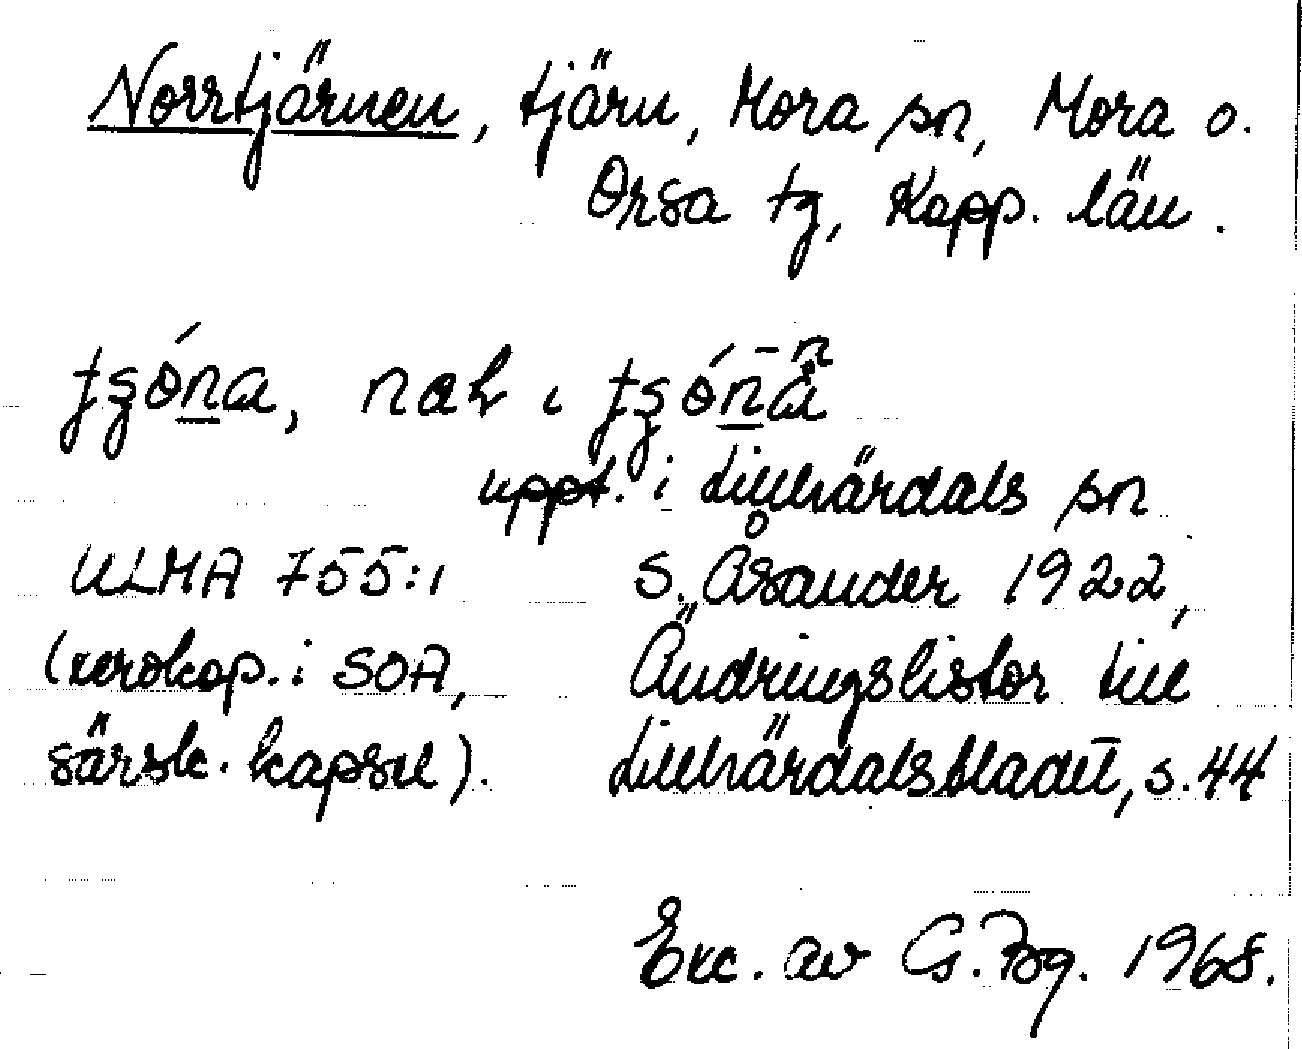 Norrtjärnen, tjärn, Mora sn, Mora o.
Orsa tg, Kopp. län.
uppt. i Lillhärdals sn
ULMA 755:1 S. Åsander 1922,
(xerokop. i SOA, Ändringslistor till
särsk. kapsel). Lillhärdalsbladet, s. 44
Exc. av G. Fbg. 1968.